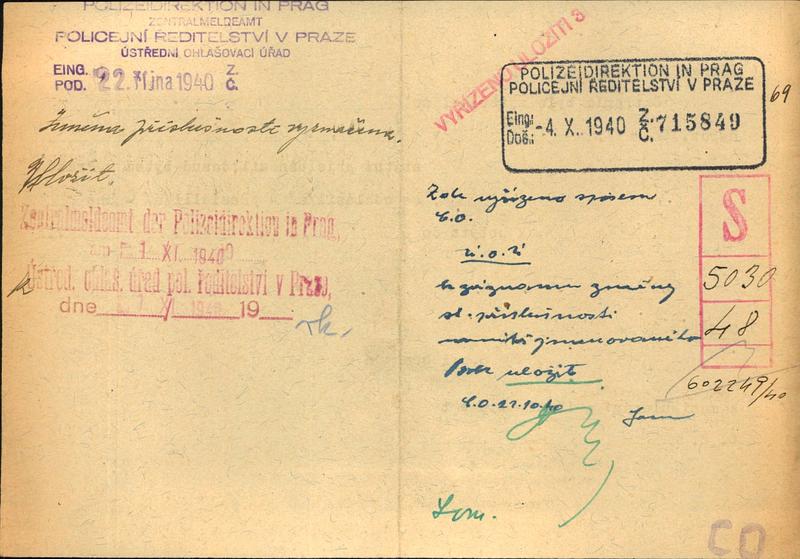 POLIZEIDIREKTION IN PRAG
ZENTRALMELDEAMT
POLICEJNÍ ŘEDITELSTVÍ V PRAZE
ÚSTŘEDNÍ OHLAŠOVACÍ ÚŘAD
EING. Z.
POD. 22. října 1940 Č.
Změna příslušnosti vyznačena.
Uložit.
Zentralmeldeamt der Polizeidirektion in Prag,
am 1 XI. 1940
Ústřed. ohlaš. úřad pol. ředitelství v Praze,
dne XI 1940 19
VYŘÍZENO ULOŽITI 3
POLIZEIDIREKTION IN PRAG
POLICEJNÍ ŘEDITELSTVÍ V PRAZE
Eing: Z.
Došl: -4. X. 1940 Č. 715849
69
Zde vyřízeno spisem
C.O.
k záznamu změny
st. příslušnosti
Pak uložit
C.O. 22.10.40
S
5030
48
602249/40
50